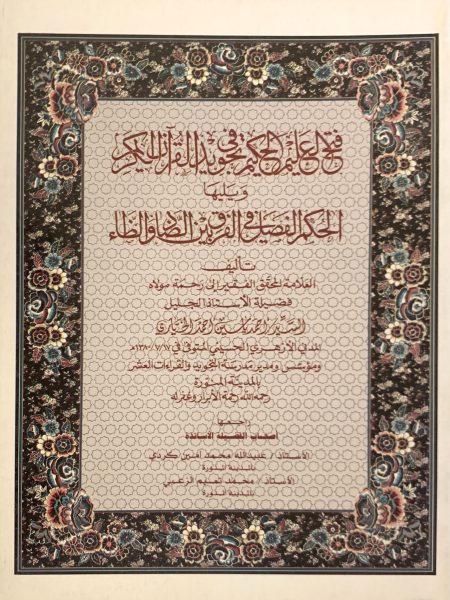 فتح العليم الحكيم في تجويد القرآن الكريم
ويليها
الحكم الفصل في الفرق بين الضاد والظاء
تأليف
العلامة المحقق الفقير إلى رحمة مولاه
فضيلة الأستاذ الجليل
السيد أحمد ياسين أحمد الخياري
المدني الأزهري الحسيني المتوفى في ١٣٨٠/٧/١٧هـ
ومؤسس ومدير مدرسة التجويد والقراءات العشر
بالمدينة المنورة
رحمه الله رحمة الأبرار وغفر له
راجعها
أصحاب الفضيلة الأساتذة
الأستاذ/ عبيدالله محمد أمين كردي
بالمدينة المنورة
الأستاذ/ محمد تميم الزعبي
بالمدينة المنورة